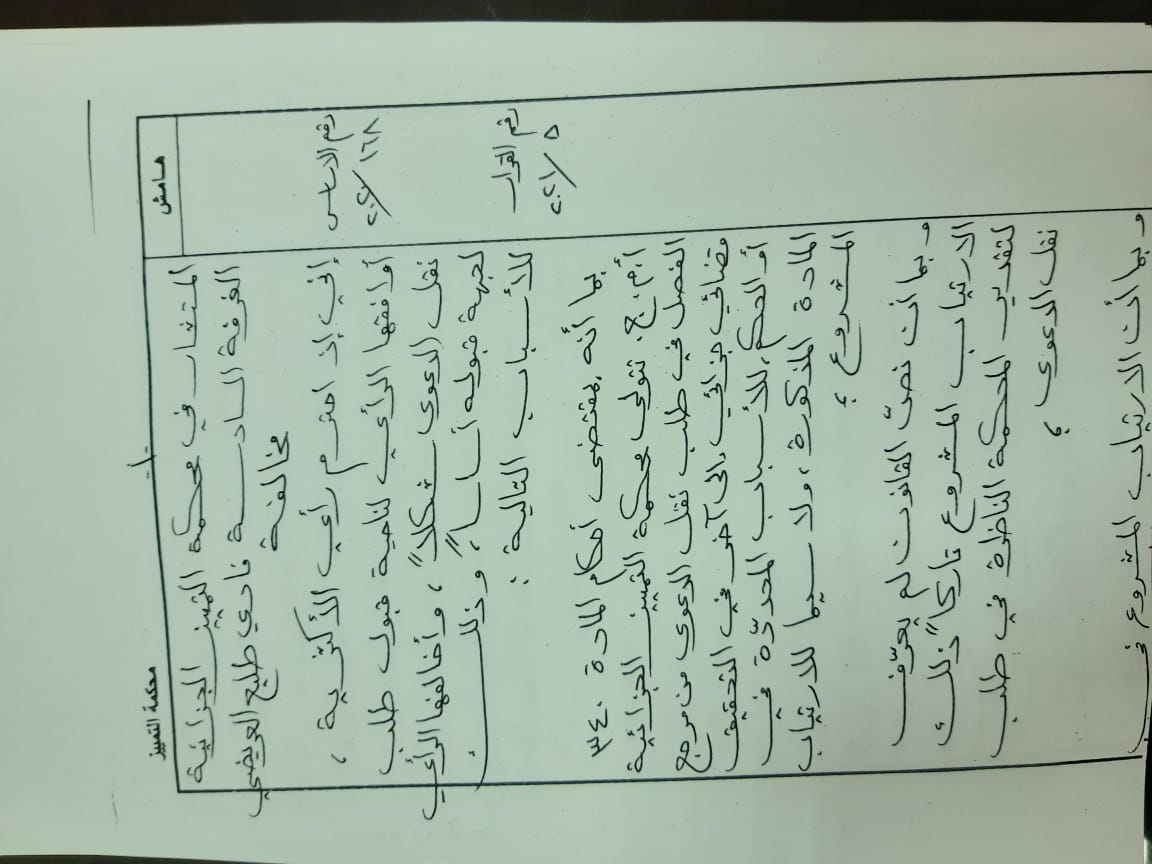 محكمة التمييز
-١-
هامش
المستشار في محكمة التمييز الجزائية
الغرفة السادسة فادي طليع العريضي
مخالفة
رقم الاساس
١٦٨/٢٠٢٠
إني إذ احترم رأي الأكثرية،
أوافقها الرأي لناحية قبول طلب
نقل الدعوى شكلاً، وأخالفها الرأي
لجهة قبوله أساساً، وذلك
للأسباب التالية:
رقم القرار
٥/٢٠٢١
بما أنه بمقتضى أحكام المادة ٣٤٠
أ.م.ج. تتولى محكمة التمييز الجزائية
الفصل في طلب نقل الدعوى من مرجع
قضائي جزائي إلى آخر في التحقيق
أو الحكم، للأسباب المحدّدة في
المادة المذكورة، ولا سيما للارتياب
المشروع؛
وبما أن نصّ القانون لم يعرّف
الارتياب المشروع تاركاً ذلك
لتقدير المحكمة الناظرة في طلب
نقل الدعوى؛
وبما أن الارتياب المشروع